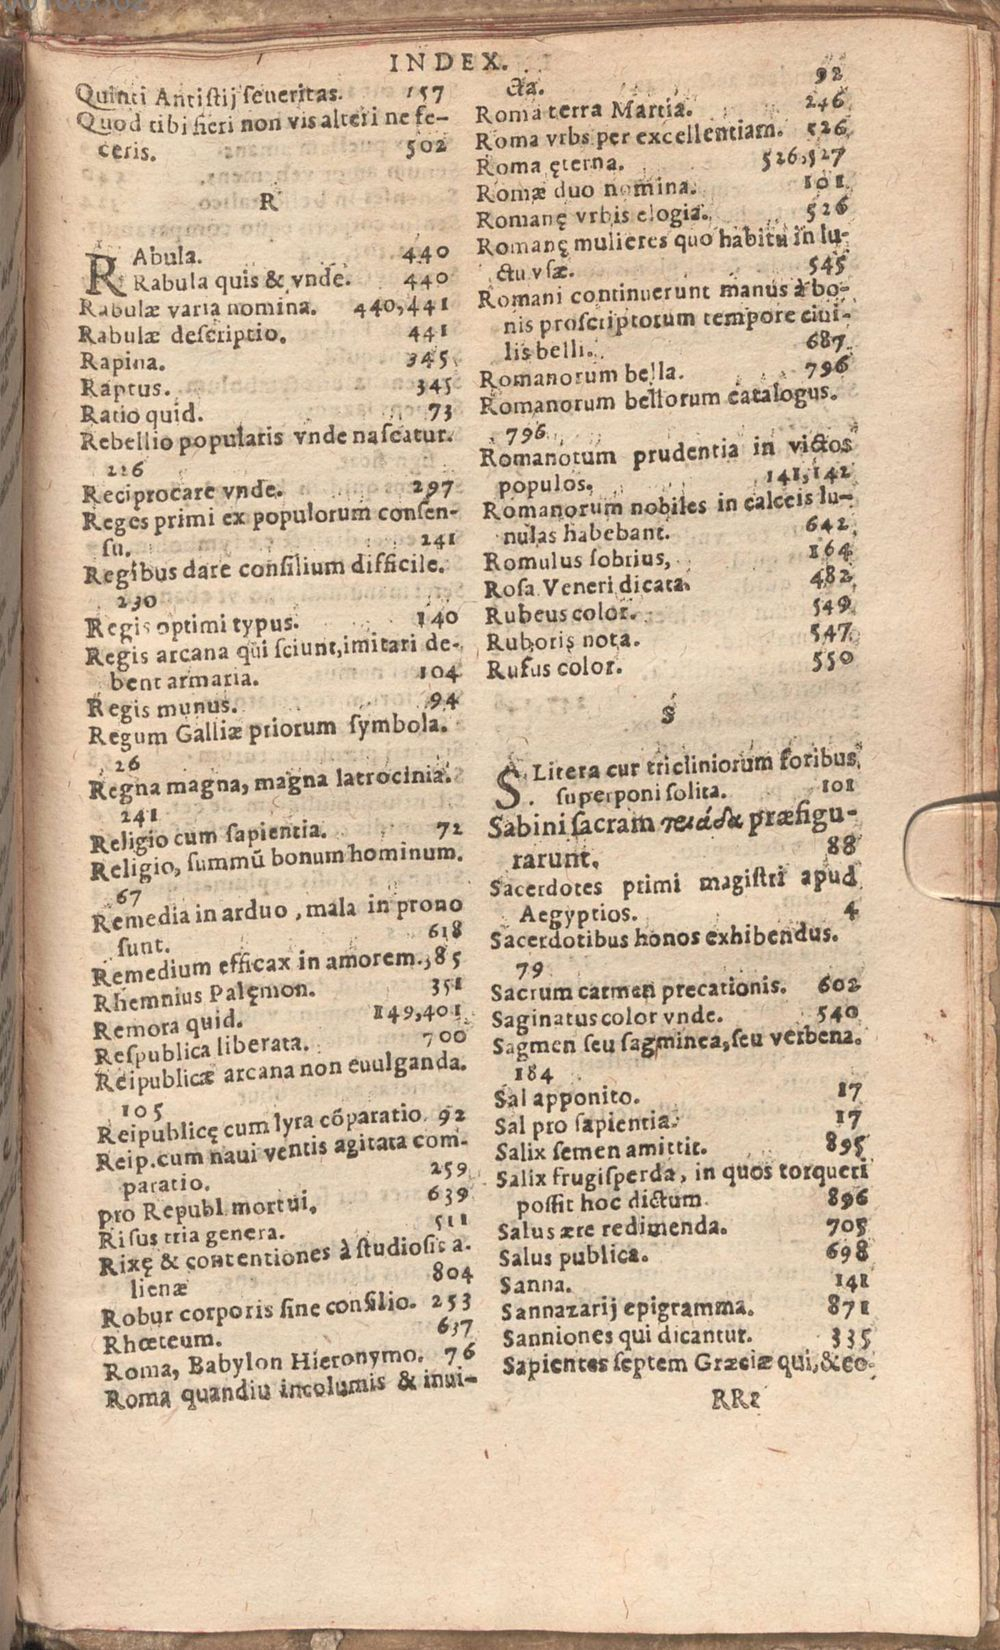 INDEX.
Quinti Antiſtij ſeueritas. 157
Quod tibi fieri non vis alteri ne fe-
ceris. 502
R
RAbula. 440
Rabula quis & vnde. 440
Rabulæ varia nomina. 440,441
Rabulæ deſcriptio. 441
Rapina. 345
Raptus. 345
Ratio quid. 73
Rebellio popularis vnde naſcatur.
226
Reciprocare vnde. 297
Reges primi ex populorum conſen-
ſu. 241
Regibus dare conſilium difficile.
230
Regis optimi typus. 140
Regis arcana qui ſciunt, imitari de-
bent armaria. 104
Regis munus. 94
Regum Galliæ priorum ſymbola.
26
Regna magna, magna latrocinia.
241
Religio cum ſapientia. 72
Religio, ſummũ bonum hominum.
67
Remedia in arduo, mala in prono
ſunt. 618
Remedium efficax in amorem. 385
Rhemnius Palęmon. 351
Remora quid. 149,401
Reſpublica liberata. 700
Reipublicæ arcana non euulganda.
105
Reipublicę cum lyra cõparatio. 92
Reip. cum naui ventis agitata com-
paratio. 259
pro Republ. mortui. 639
Riſus tria genera. 511
Rixę & contentiones à ſtudioſis a-
lienæ 804
Robur corporis ſine conſilio. 253
Rhœteum. 637
Roma, Babylon Hieronymo. 76
Roma quandiu incolumis & inui-
cta. 92
Roma terra Martia. 246
Roma vrbs per excellentiam. 526
Roma ęterna. 526,527
Romæ duo nomina. 101
Romanę vrbis elogia. 526
Romanę mulieres quo habitu in lu-
ctu vſæ. 545
Romani continuerunt manus à bo-
nis proſcriptorum tempore ciui-
lis belli. 687
Romanorum bella. 796
Romanorum bellorum catalogus.
796
Romanorum prudentia in victos
populos. 141,142
Romanorum nobiles in calceis lu-
nulas habebant. 642
Romulus ſobrius, 164
Roſa Veneri dicata. 482
Rubeus color. 549
Ruboris nota. 547
Rufus color. 550
S
S. Litera cur tricliniorum foribus
ſuperponi ſolita. 101
Sabini ſacram τειάδα præfigu-
rarunt. 88
Sacerdotes primi magiſtri apud
Aegyptios. 4
Sacerdotibus honos exhibendus.
79
Sacrum carmen precationis. 602
Saginatus color vnde. 540
Sagmen ſeu ſagminea, ſeu verbena.
184
Sal apponito. 17
Sal pro ſapientia. 17
Salix ſemen amittit. 895
Salix frugiſperda, in quos torqueri
poſſit hoc dictum. 896
Salus ære redimenda. 705
Salus publica. 698
Sanna. 141
Sannazarij epigramma. 871
Sanniones qui dicantur. 335
Sapientes ſeptem Græciæ qui, & eo-
RR2